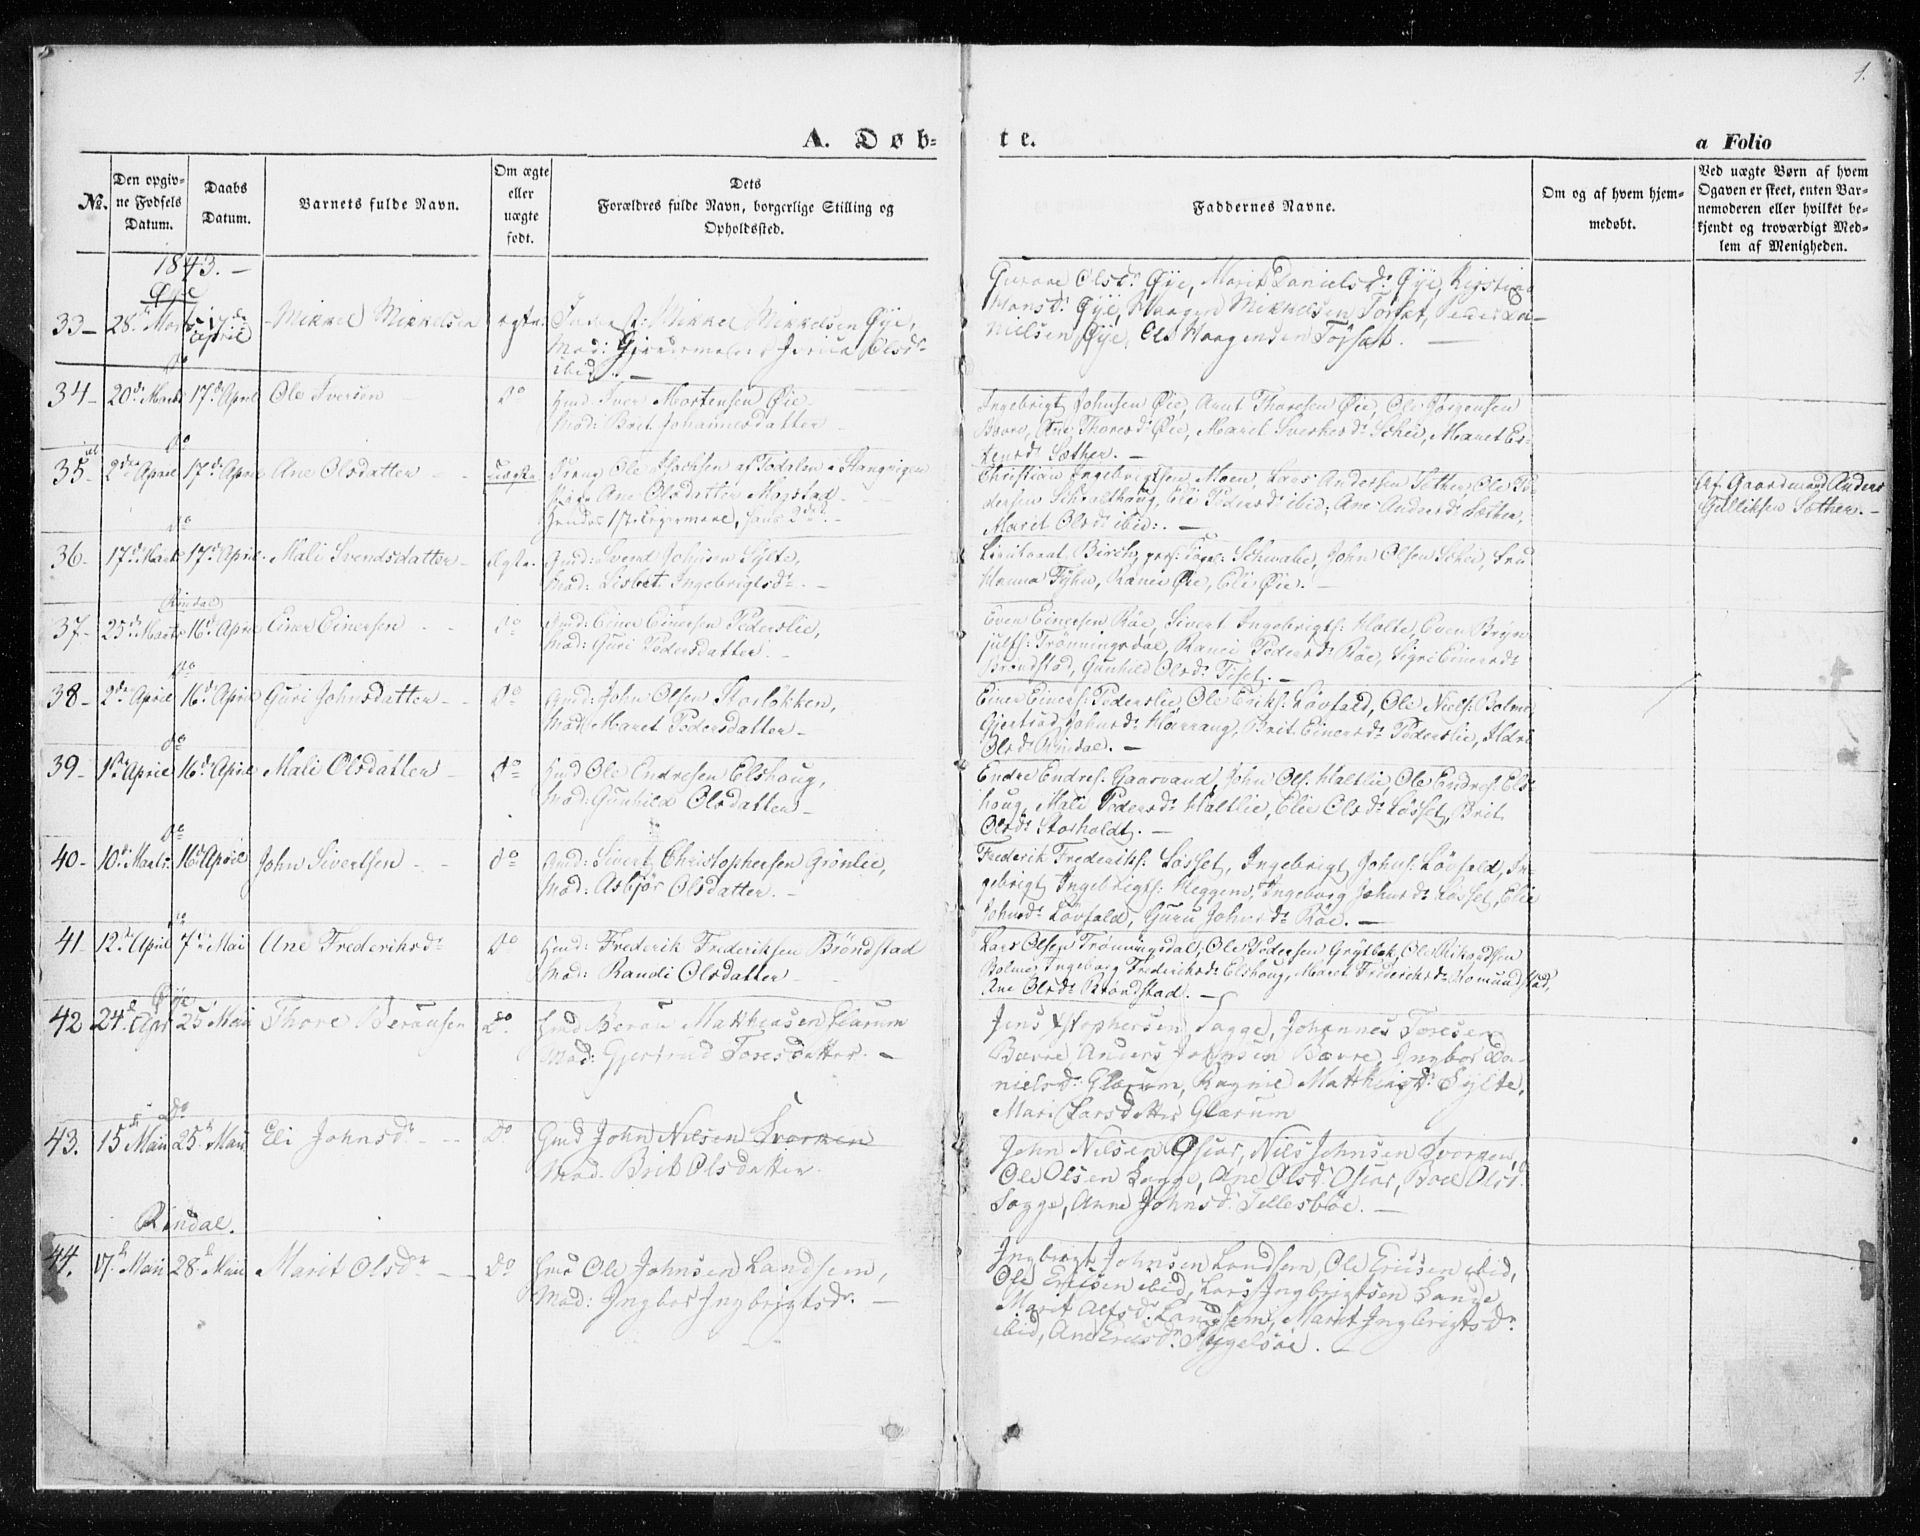 1.
A. Døb-
te.
a Folio
No.
Den opgiv-
ne Fødsels
Datum.
Daabs
Datum.
Barnets fulde Navn.
Om ægte
eller
uægte
født.
Dets
Forældres fulde Navn, borgerlige Stilling og
Opholdssted.
Faddernes Navne.
Om og af hvem hjem-
medøbt.
Ved uægte Børn af hvem
Opgaven er skeet, enten Bar-
nemoderen eller hvilket be-
kjendt og troværdigt Med-
lem af Menigheden.
1843. -
Øye
33- 28 Marts 17de April Mikkel Mikkelsen ægte
Mikkel Mikkelsen Øye,
Mad: Olsdr
ibid. -
Olsdr Øye, Marit Danielsdr Øye, Kirstine
Hansdr Øye, Haagen Mikkelsen Torset, Peder Da-
nielsen Øye, Ole Haagensen Torset. -
Do
34- 20de Marts 17de April Ole Iversen - Do
Gmd: Iver Mortensen Øie
Mod: Brit Johannesdatter -
Ingebrigt Johnsen Øie, Arnt Thoresen Øie, Ole Jørgensen
Bævre, Ane Thoresdr Øie, Maret Sverkesdr Schei, Maret Es-
tensdr Sæther. -
Do
35 2den April 17de April Ane Olsdatter - - uægte
Dreng Ole Isachsen af Todalen i Stangvigen
Pige Ane Olsdatter Mogstad -
Hendes 1ste Leiermaal, hans 2det. -
Christian Ingebrigtsen Moen, Lars Andersen Sæther, Ole Pe-
dersen Schralthoug, Eli Pedersdr ibid; Ane Andersdr Sæther,
Marit Olsdr ibid:. -
Af Gaardmand Anders
Gulliksen Sæther. -
Do
36- 17de Marts 17de April Mali Svendsdatter - ægte
Gmd: Svend Johnsen Sylte,
Mod: Lisbet Ingebrigtsdr -
Lieutenant Birch, Schwabe, John Olsen Schei, Fru
Hanna Fyhn, Ranei Øie, Eli Øie. -
Rindal
37- 25de Marts 16de April Einer Einersen - - Do
Gmd: Einer Einersen Pederslie,
Mod: Guri Pedersdatter. -
Even Einersen Røe, Sivert Ingebrigts: Holte, Even Bryn-
julfs: Trønningsdal, Ranei Pedersdr Røe, Sigri Einersdr
Brøndstad, Gunhild Olsdr Tiset. -
Do
38- 2den April 16de April Guri Johnsdatter - - Do
Gmd: John Olsen Storløkken,
Mod: Maret Pedersdatter -
Einer Einers: Pederslie, Ole Eriks: Løvfald, Ole Niels: Bolme,
Gjertrud Johnsdr Harrang, Brit Einersdr Pederslie, Ildri
Olsdr Rindal. -
Do
39- 1ste April 16de April Mali Olsdatter - Do
Gmd Ole Endresen Elshoug,
Mod: Gunhild Olsdatter -
Endre Endres: Gaasvand, John Ols: Haltlie, Ole Endres: Els-
houg, Mali Pedersdr Haltlie, Elie Olsdr Løsset, Brit
Olsdr Storholdt. -
Do
40- 10de Marts 16de April John Sivertsen - - do
Gmd: Sivert Christophersen Grønlie,
Mod: Asbjør Olsdatter -
Frederik Frederiks: Løsset, Ingebrigt Johns: Løvfald, In-
gebrigt Ingebrigts: Heggem, Ingeborg Johnsdr Løsset, Elie
Johnsdr Løvfald, Guru Johnsdr Røe. -
Do
41. 12te April 7de Mai Ane Frederiksdr Do
Gmd: Frederik Frederiksen Brøndstad
Mod: Randi Olsdatter -
Lars Olsen Trønningsdal, Ole Pedersen Grytbak, Ole
Bolme, Ingeborg Frederiksdr Elshoug, Maret Frederiksdr Romundstad,
Ane Olsdr Brøndstad. -
Øye
42 24de Apr: 25 Mai Thore Beraúsen Do
Gmd Beraú Mathiasen Glarum
Mod: Gjertrud Toresdatter. -
Jens Xstophersen Sagge, Johannes Toresen
Bævre, Anders Johnsen Bævre, Ingbor Da-
nielsdr: Glærum, Ragnie Matthiasdr Sylte,
Mari Larsdatter Glarum
Do
43. 15 Mai 25 Mai Eli Johnsdr - -- Do
Gmd John Nilsen Svorken
Mod. Brit Olsdatter.
John Nilsen Osear, Nils Johnsen Svorken,
Ole Olsen Lange, Ane Olsdr. Osear, Boel Olsd.
Sagge, Anne Johnsdr. Tellesbøe. -
Rindal.
44. 17. Mai 28 Mai Marit Olsdr - - Do
Gmd Ole Johnsen Landsem,
Mod: Ingbor Ingbrigtsdr. -
Ingbrigt Johnsen Landsem, Ole Ericsen ibid,
Ole Ericsen ibid, Lars Ingbrigtsen Lange
Marit Alfsdr. Landsem, Marit Ingbrigtsdr
ibid, Ane Ericsdr. -